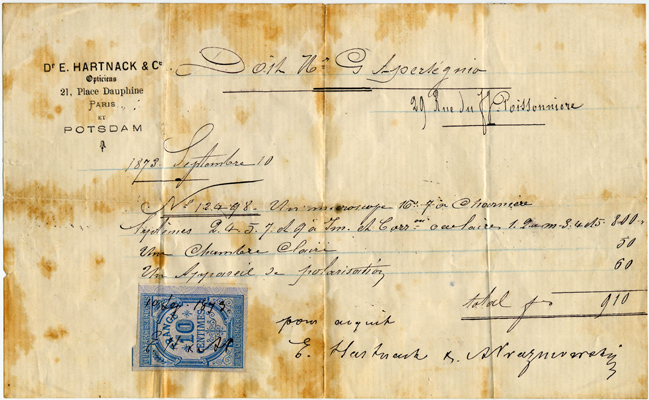 Dr E. HARTNACK & Cie
Opticiens
21, Place Dauphine
PARIS
ET
POTSDAM
Doit Mr G
29 Rue du fg Poissonniere
1873. Septembre 10
No 12498. Un microscope No 7 à Charnière
Systèmes 2.4.5.7. et 9 à Im. et Corron oculaires 1.2. 3.4 et 5 800
Une Chambre Claire 50
Un Appareil de polarisation 60
total frs 910
10 1873
10
CENTIMES
pour acquit
E. Hartnack & A Prazmowski